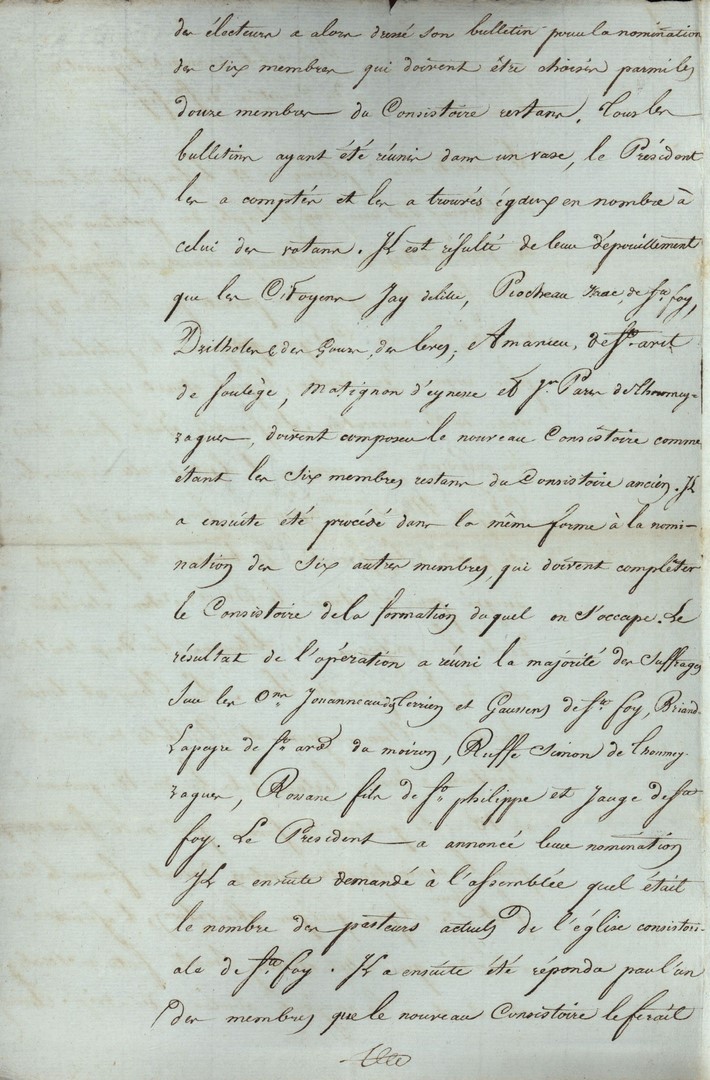 des électeurs a alors dressé son bulletin pour la nomination
des six membres qui doivent être choisis parmi les
douze membres du Consistoire restans. Tous les
bulletins ayant été réunis dans un vase, le Président
les a comptés et les a trouvés égaux en nombre à
celui des votans. Il est résulté de leur dépouillement
que les Citoyens Jay delille, Piocheau de Ste foy,
des Gours, des leres, Amanieu, de St. avit
de Soulège, Matignon d'eynesse et Jn. Pares de Thoumey-
ragues, doivent composer le nouveau Consistoire comme
étant les six membres restans du Consistoire ancien. Il
a ensuite été procédé dans la même forme à la nomi-
nation des six autres membres, qui doivent compléter
le Consistoire de la formation duquel on s'occupe. Le
résultat de l'opération a réuni la majorité des suffrages
sur les et Gaussens de Ste foy, Briand-
Lapeyre de St. avit du moiron, Ruffe Simon de Thoumey-
ragues, Rossane fils de St. philippe et Jauge de Ste
foy. Le President a annoncé leur nomination
Il a ensuite demandé à l'assemblée quel était
le nombre des pasteurs actuels de l'église consistori-
ale de Ste foy. Il a ensuite été répondu par l'un
des membres que le nouveau Consistoire le ferait